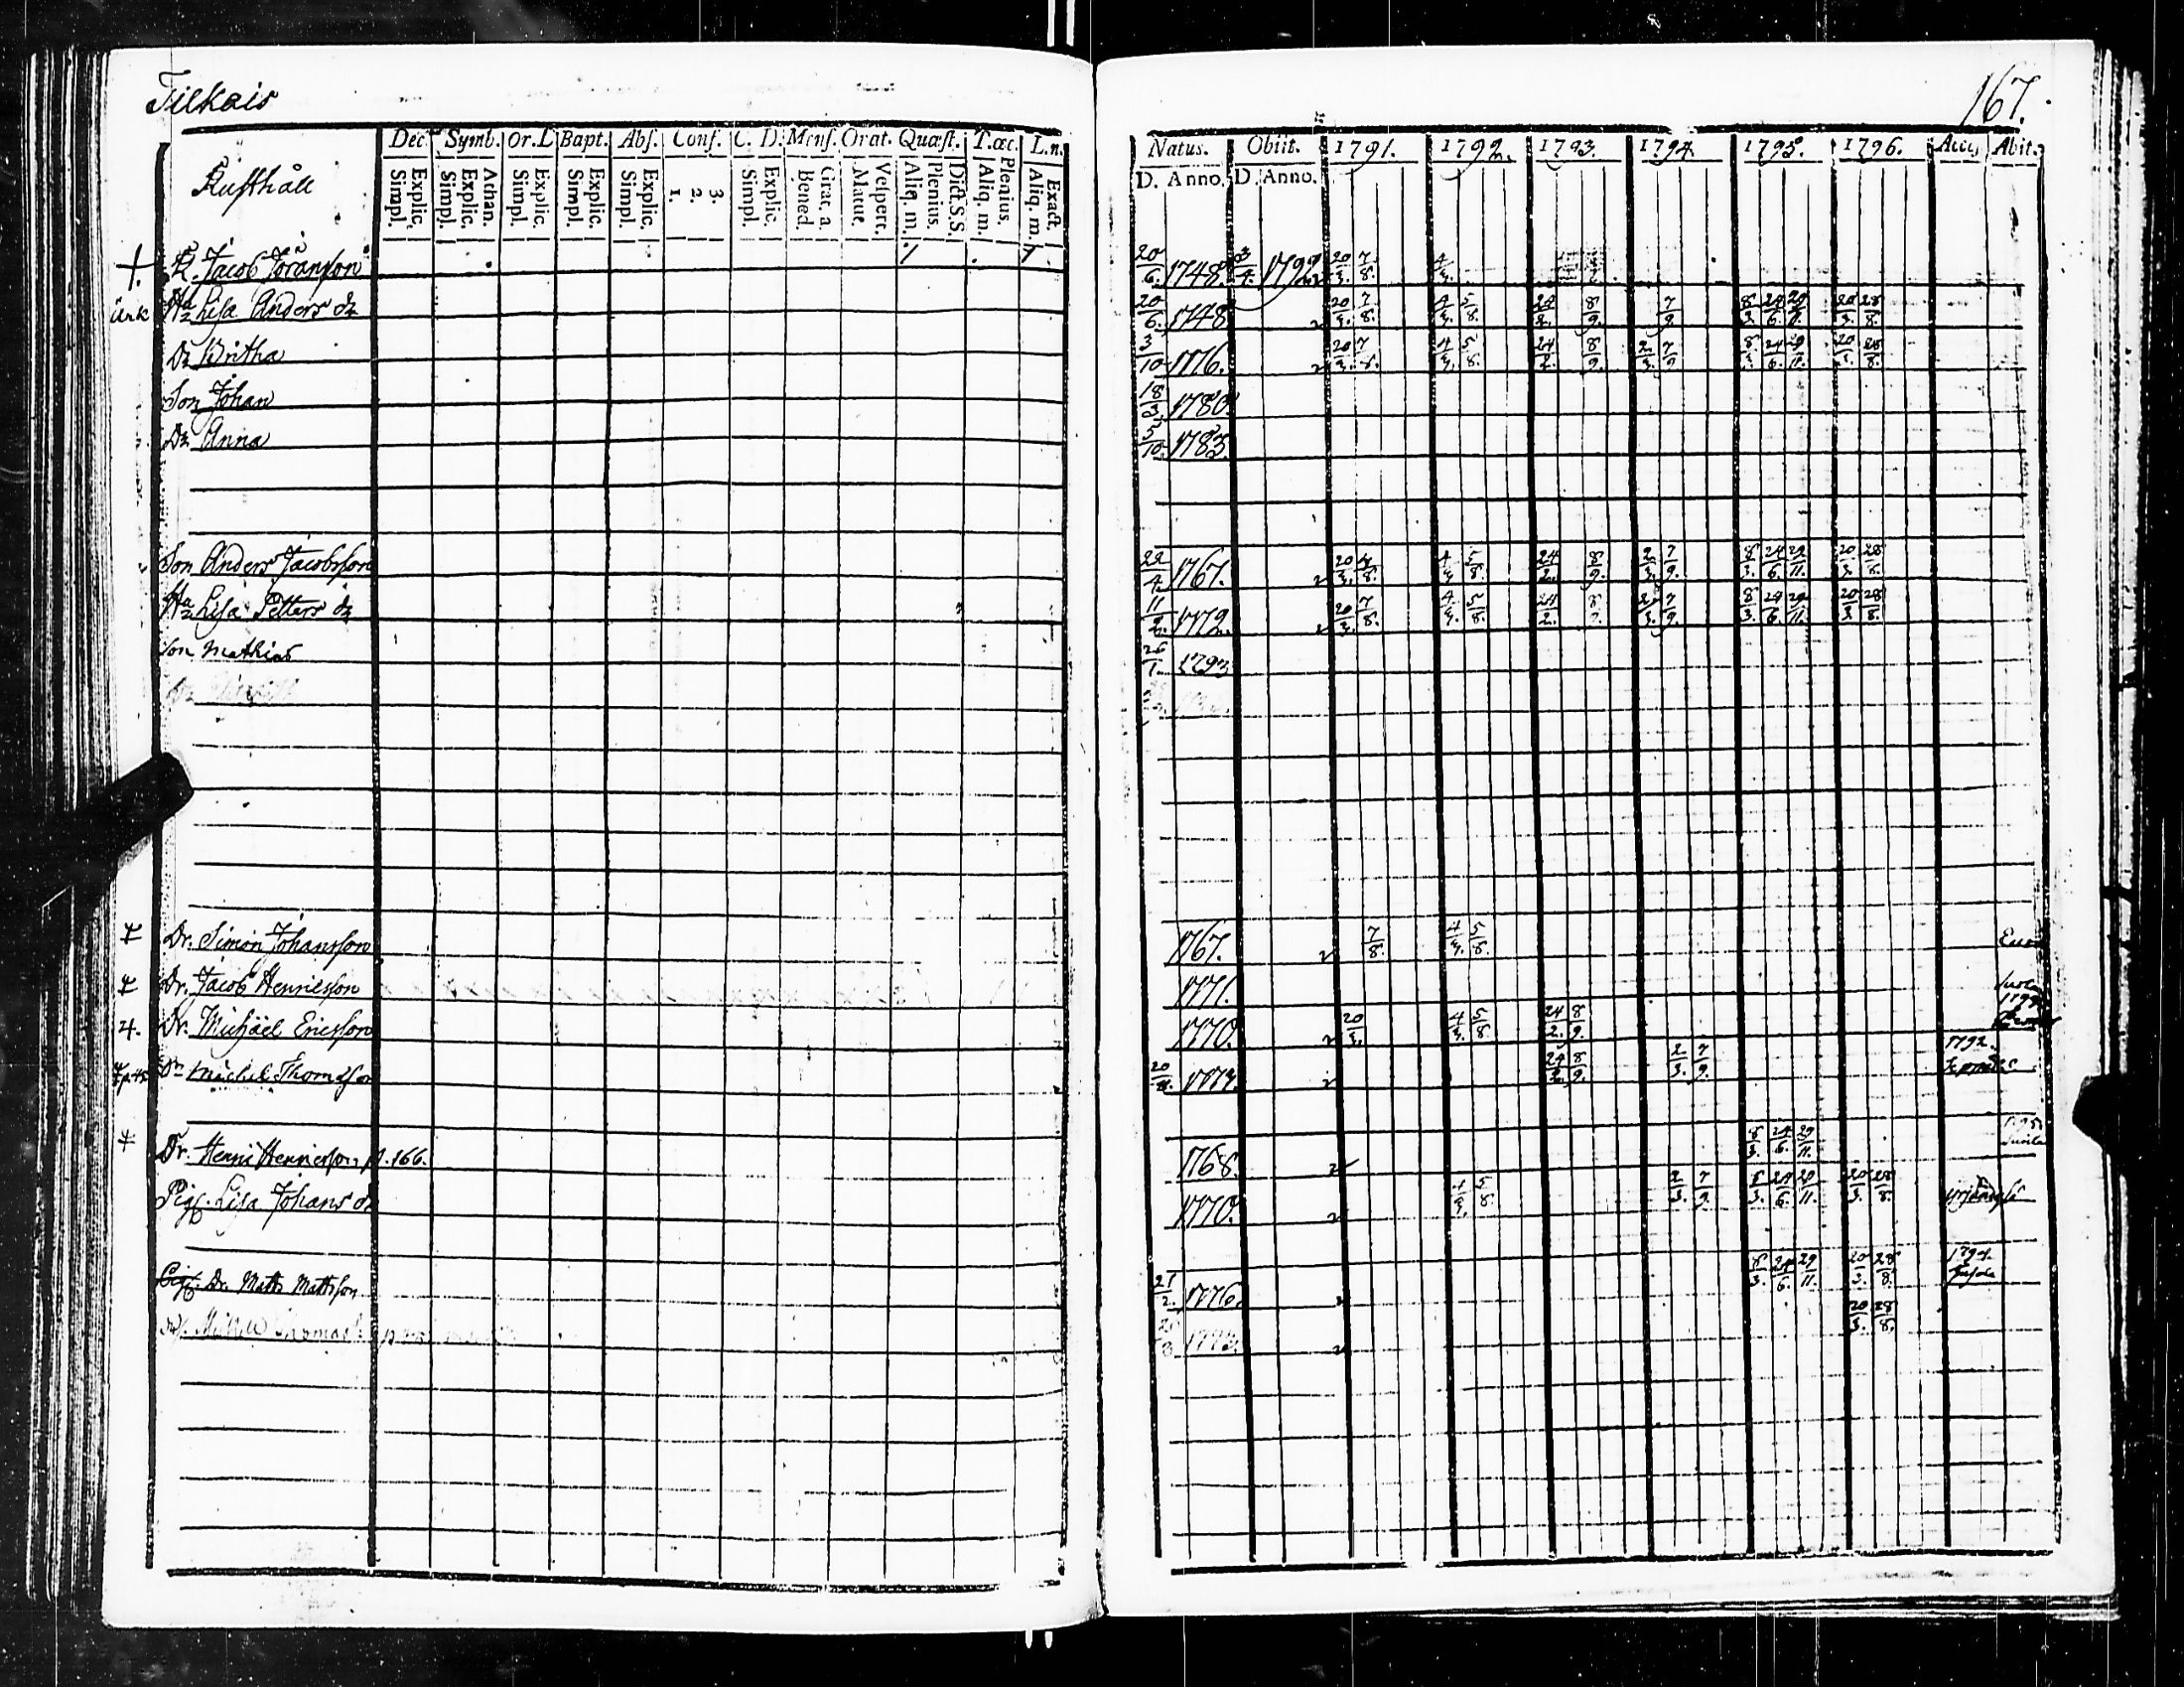 Tilkais
167.
Dec. Symb. Or.D Bapt. Abs. Conf. C. D. Mens. Orat. Quæst. T.œc. L.n.
Simpl. Explic. Simpl. Explic. Athan. Simpl. Explic. Simpl. Explic. Simpl. Explic. 1. 2. 3. Simpl. Explic. Bened. Grat. a. Matut. Vespert. Aliq. m. Plenius. Dict.S.S. Aliq. m. Plenius. Aliq. m. Exact.
Natus. Obiit. 1791. 1792. 1793. 1794. 1795. 1796. Acces. Abit.
D. Anno. D. Anno.
Rusthåll
R. Jacob Jöransson 20/6. 1748. 3/4. 1792 20/3. 7/8. 4/3.
änk Hu Lisa Anders dr 20/6. 1748 20/3. 7/8. 4/3. 5/8. 24/2. 8/9. 7/9. 8/3. 24/6. 29/11. 20/3. 28/8.
Dr Britha 3/10 1776. 20/3. 7/8. 4/3. 5/8. 24/2. 8/9. 2/3. 7/9. 8/3. 24/6. 29/11. 20/3. 28/8.
Son Johan 18/3. 1780.
Dr Anna 5/10. 1783.
Son Anders Jacobsson 22/4. 1767. 20/3. 7/8. 4/3. 5/8. 24/2. 8/9. 2/3. 7/9. 8/3. 24/6. 29/11. 20/3. 28/8.
Hu Lisa Petters dr 11/2. 1772. 20/3. 7/8. 4/3. 5/8. 24/2. 8/9. 2/3. 7/9. 8/3. 24/6. 29/11. 20/3. 28/8.
Son Mathias 26/1. 1793
Dr. Simon Johansson 1767. 7/8. 4/3. 5/8.
Dr. Jacob Henricsson 1771.
Dr. Michäel Ericsson 1770. 20/3. 4/3. 5/8. 24/2. 8/9.
Dr Michel Thomasson 20/8. 1773. 24/2. 8/9. 2/3. 7/9. 1792.
Dr. Henric Henricsson p. 166. 1768. 8/3. 24/6. 29/11. 1795
Pig. Lisa Johans dr 1770. 4/3. 5/8. 2/3. 7/9. 8/3. 24/6. 29/11. 20/3. 28/8.
Dr. Matts Mattsson 27/2. 1776. 8/3. 24/6. 29/11. 20/3. 28/8. 1794
1773. 20/3. 28/8.